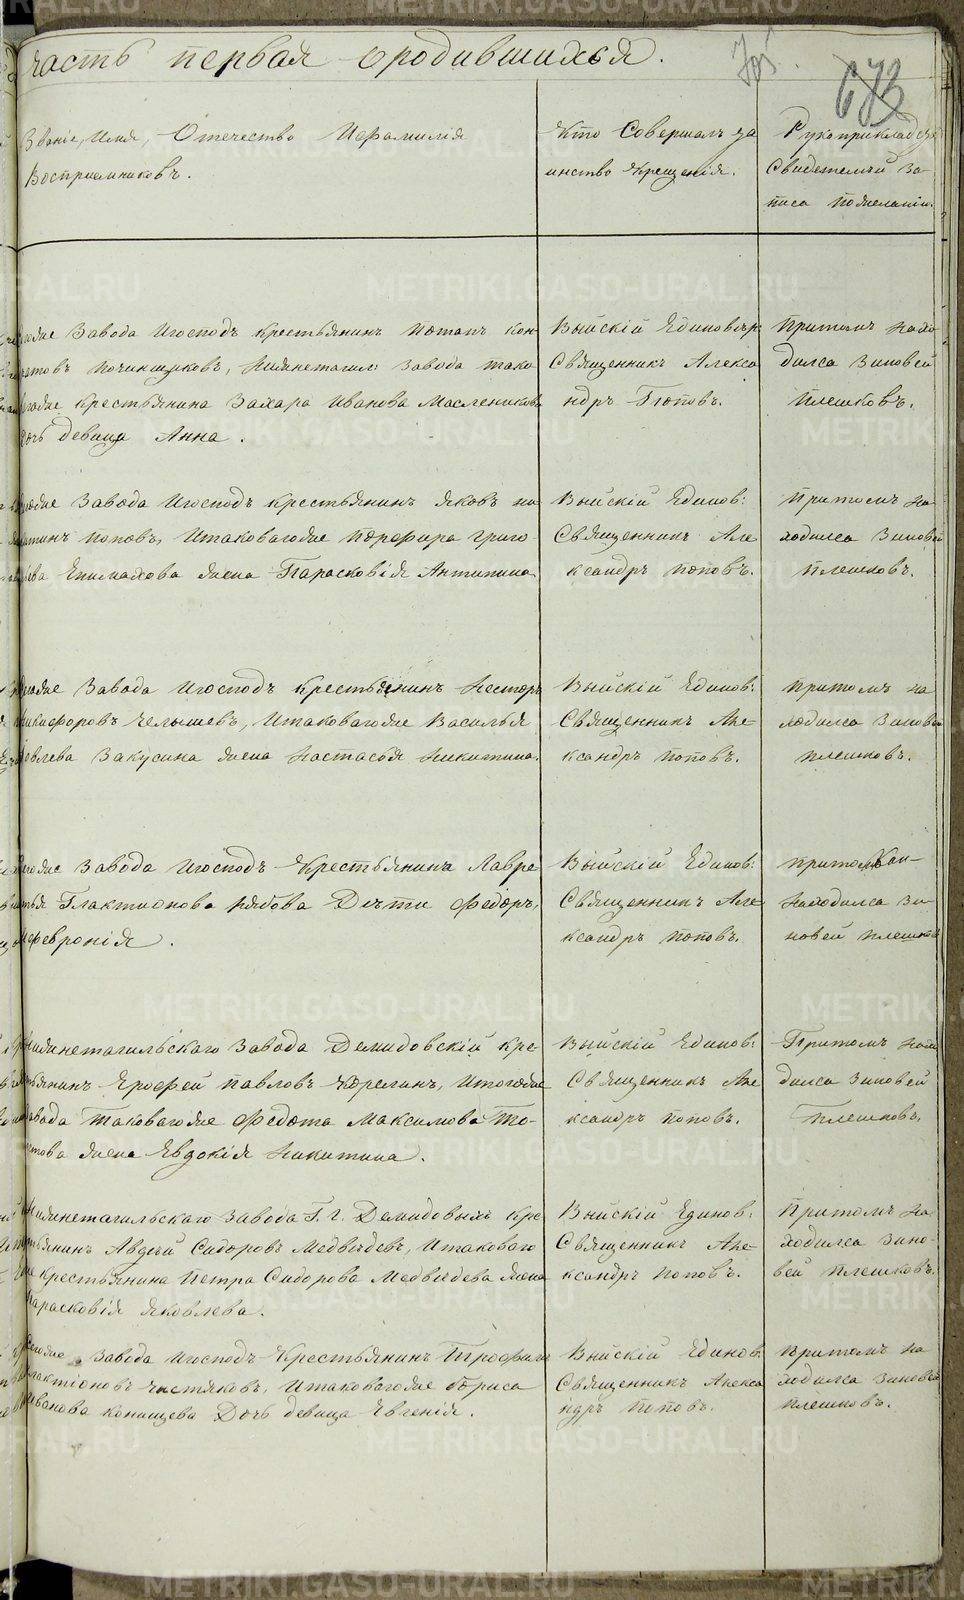 часть первая о родившихся.
703.
673
Звание, Имя, Отечество И Фамилия
Восприемниковъ.
Кто Совершалъ та
инство крещенія.
Рукоприкладство
Свидетелей за
писа по желанію.
Завода Игосподъ крестьянинъ Потапъ Кон-
Починщиковъ, Нижнетагил: завода тако
крестьянина Захара Иванова Масленикова
дочь девица Анна.
Выйскій Единоверч
Священникъ Алекса
ндръ Поповъ.
Притомъ нахо
дилса Зиновей
Плешковъ.
Завода Игосподъ крестьянинъ Яковъ
Поповъ, Итаковагоже Порфира Григо-
Епимахова жена Парасковія Антипина
Выйскій Единов:
Священникъ Але
ксандръ Поповъ.
Притомъ на
ходилса Зиновей
Плешковъ.
Завода Игосподъ крестьянинъ Несторъ
Никифоровъ Челышевъ, Итаковагоже Василья
Закусина жена Настасья Никитина.
Выйскій Единов:
Священникъ Але-
ксандръ Поповъ.
притомъ на
ходилса Зиновей
Плешковъ.
Завода Игосподъ Крестьянина Лавре
Галактионова Рябова Дети Федоръ,
Февронія.
Выйскій Единов:
Священникъ Але
ксандръ Поповъ.
притомъ
Находилса Зи-
новей Плешковъ
Нижнетагильскаго Завода Демидовскій кре
стьянинъ Ерофей Павловъ Корелинъ, Итогоже
завода таковагоже Федота Максимова То-
жена Евдокія Никитина.
Выйскій Единов:
Священникъ Але
ксандръ Поповъ.
Притомъ нахо
дилса Зиновей
Плешковъ.
Нижнетагильскаго Завода Г. Г. Демидовыхъ кре
стьянинъ Авдей Сидоровъ Медведевъ, Итаковаго
же крестьянина Петра Сидорова Медведева жена
Парасковія Яковлева.
Выйскій Единов:
Священникъ Але-
ксандръ Поповъ.
Притомъ На-
ходилса Зино-
вей Плешковъ.
Завода Игосподъ Крестьянинъ Трофимъ
Галактіоновъ Чистяковъ, Итаковагоже Бориса
Иванова Конищева Дочь девица Евгенія.
Выйскій Единов:
Священникъ Алекса
ндръ Поповъ.
Притомъ на
ходилса Зиновей
Плешковъ.
METRIKI.GASO-URAL.RU